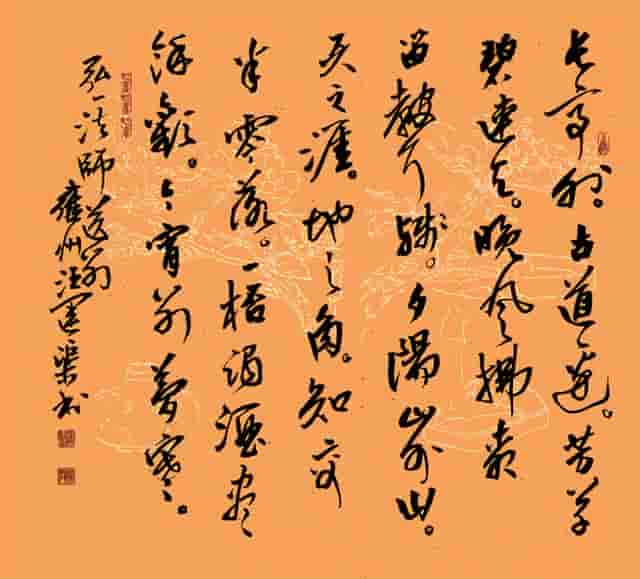 长亭外。古道边。芳草
碧連天。晚风拂柳
笛聲残。夕陽山外山。
天之涯。地之角。知交
半零落。一桮濁酒尽
餘歡。今宵别夢寒。
弘一法師送别
雍州汪運渠书